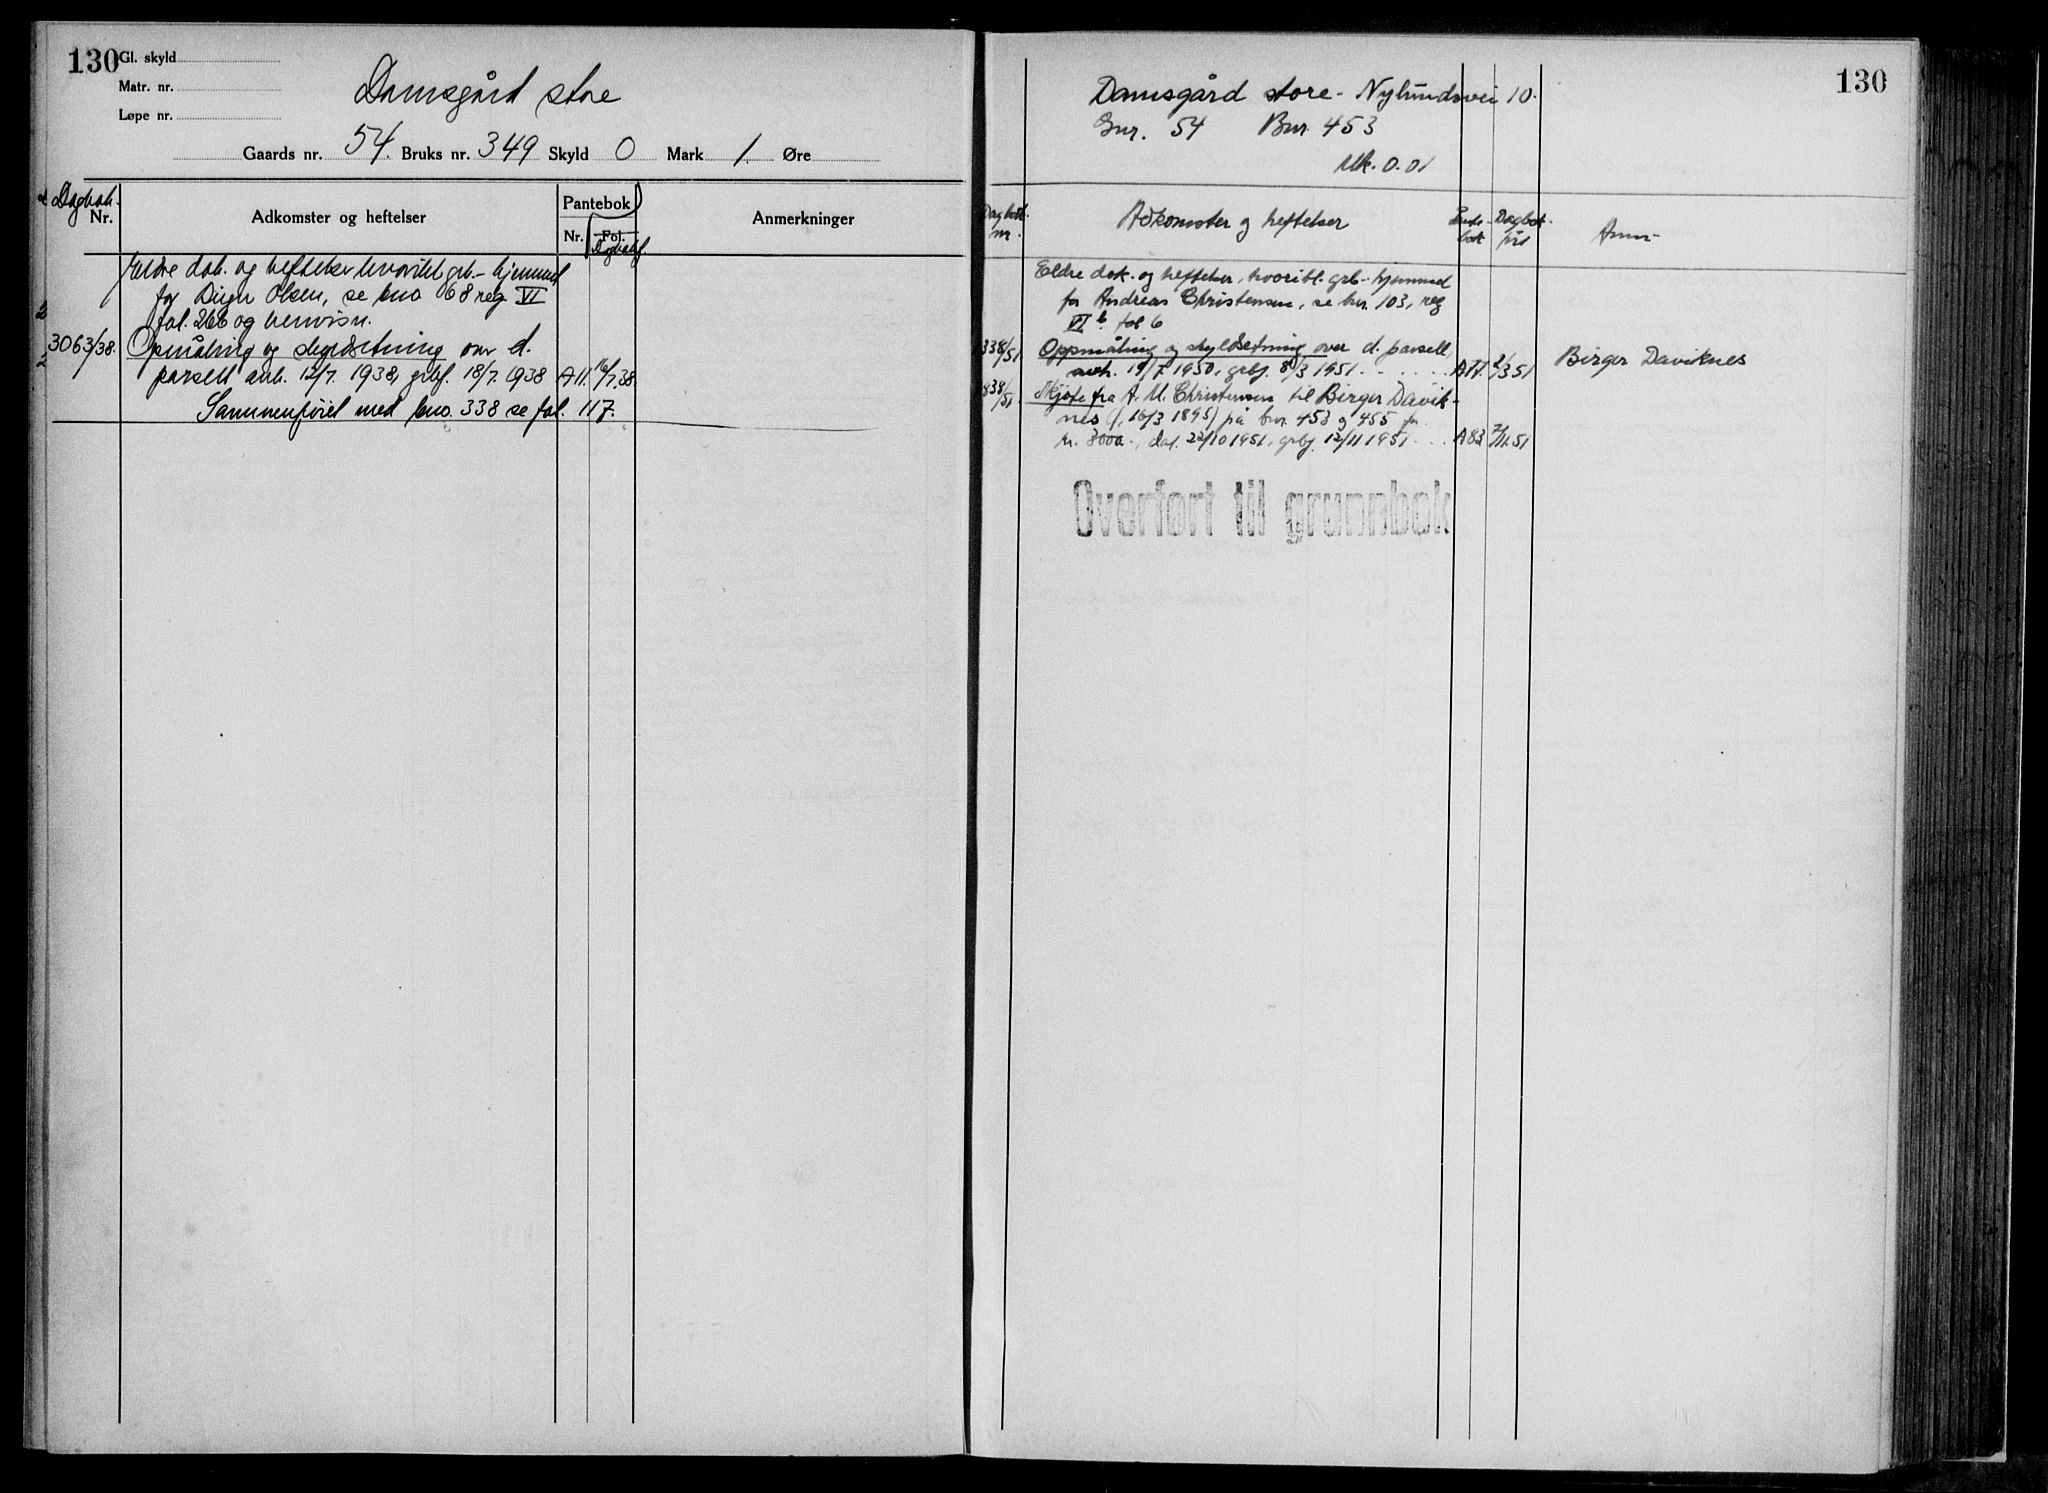 130
Gl. skyld
Matr. nr.
Løpe nr.
Damsgård store
Gaards nr. 54. Bruks nr. 349 Skyld 0 Mark 1. Øre
Dagbok.
Nr.
Adkomster og heftelser
Pantebok
Nr. Fol.
Dagbokf.
Anmerkninger
Eldre dok. og heftelser hvoriblt grb.- hjemmel
for Olsen, se bno 68 reg VI
fol. 266 og henvisn.
3063/38. Opmåling og skyldsetning over d.
parsell avh. 12/7. 1938, grbf. 18/7. 1938 A11. 16/7.38.
Sammenføiet med bno. 338 se fol. 117.
130
Damsgård store - Nylundsvei 10.
Gnr. 54 Bnr. 453
Mk. 0.01
Dagbok nr.
Adkomster og heftelser
Pante-
bok
Dagbok-
Anm-
Eldre dok. og heftelser, hvoribl. grb- hjemmel
for Andreas Christensen, se bnr. 103, reg
VI b fol 6
338/51 Oppmåling og skyldsetning over d. parsell,
avh. 19/7 1950, grbf. 8/3 1951 . . . . . . A77. 2/3 51 Birger Daviknes
838/51. Skjøte fra A. M. Christensen til Birger Davik-
nes (f. 16/3 1895) på bnr 453 og 455 for
kr. 3000.-, dat. 22/10 1951, grbf. 12/11 1951 . . . A83 7/11.51
Overført til grunnbok